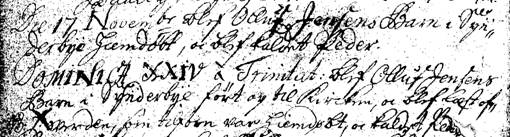 Die 17 Novembr blef Olluf Jensens Barn i Syn-
derbye hjemdøbt, oc blef kaldet Peder.
DOMINICA XXIV à Trinitat: blef Olluf Jensens
Barn i Synderbye ført op til Kircken, oc blef læst ofr
som tilforn var hiemdøbt, oc kaldet Ped